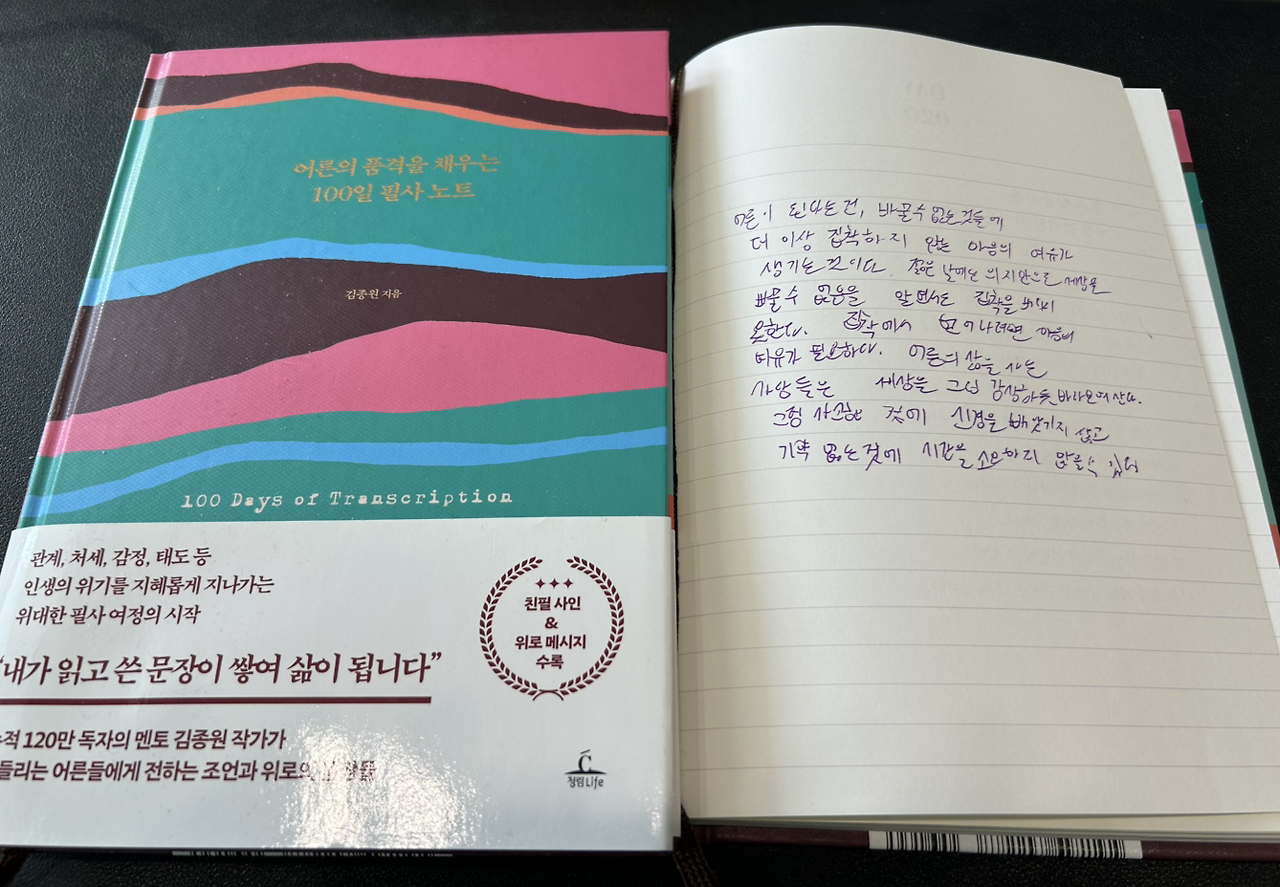 어른의 품격을 채우는
100일 필사 노트
김종원 지음
100 Days of Transcription
관계, 처세, 감정, 태도 등
인생의 위기를 지혜롭게 지나가는
위대한 필사 여정의 시작
“내가 읽고 쓴 문장이 쌓여 삶이 됩니다”
적 120만 독자의 멘토 김종원 작가가
들리는 어른들에게 전하는 조언과 위로의
친필 사인
&
위로 메시지
수록
청림Life
어른이 된다는건, 바꿀수 없는것들에
더 이상 집착하지 않는 마음의 여유가
생기는 것이다. 젊은 날에는 의지만으로 세상을
바꿀 수 없음을 알면서도 집착을
못한다. 집착에서 벗어나려면 마음의
여유가 필요하다. 어른의 삶을 사는
사람들은 세상을 그저 감상하듯 바라보며 산다.
그럼 사소한 것에 신경을 빼앗기지 않고
기약 없는것에 시간을 소모하지 않을수 있다